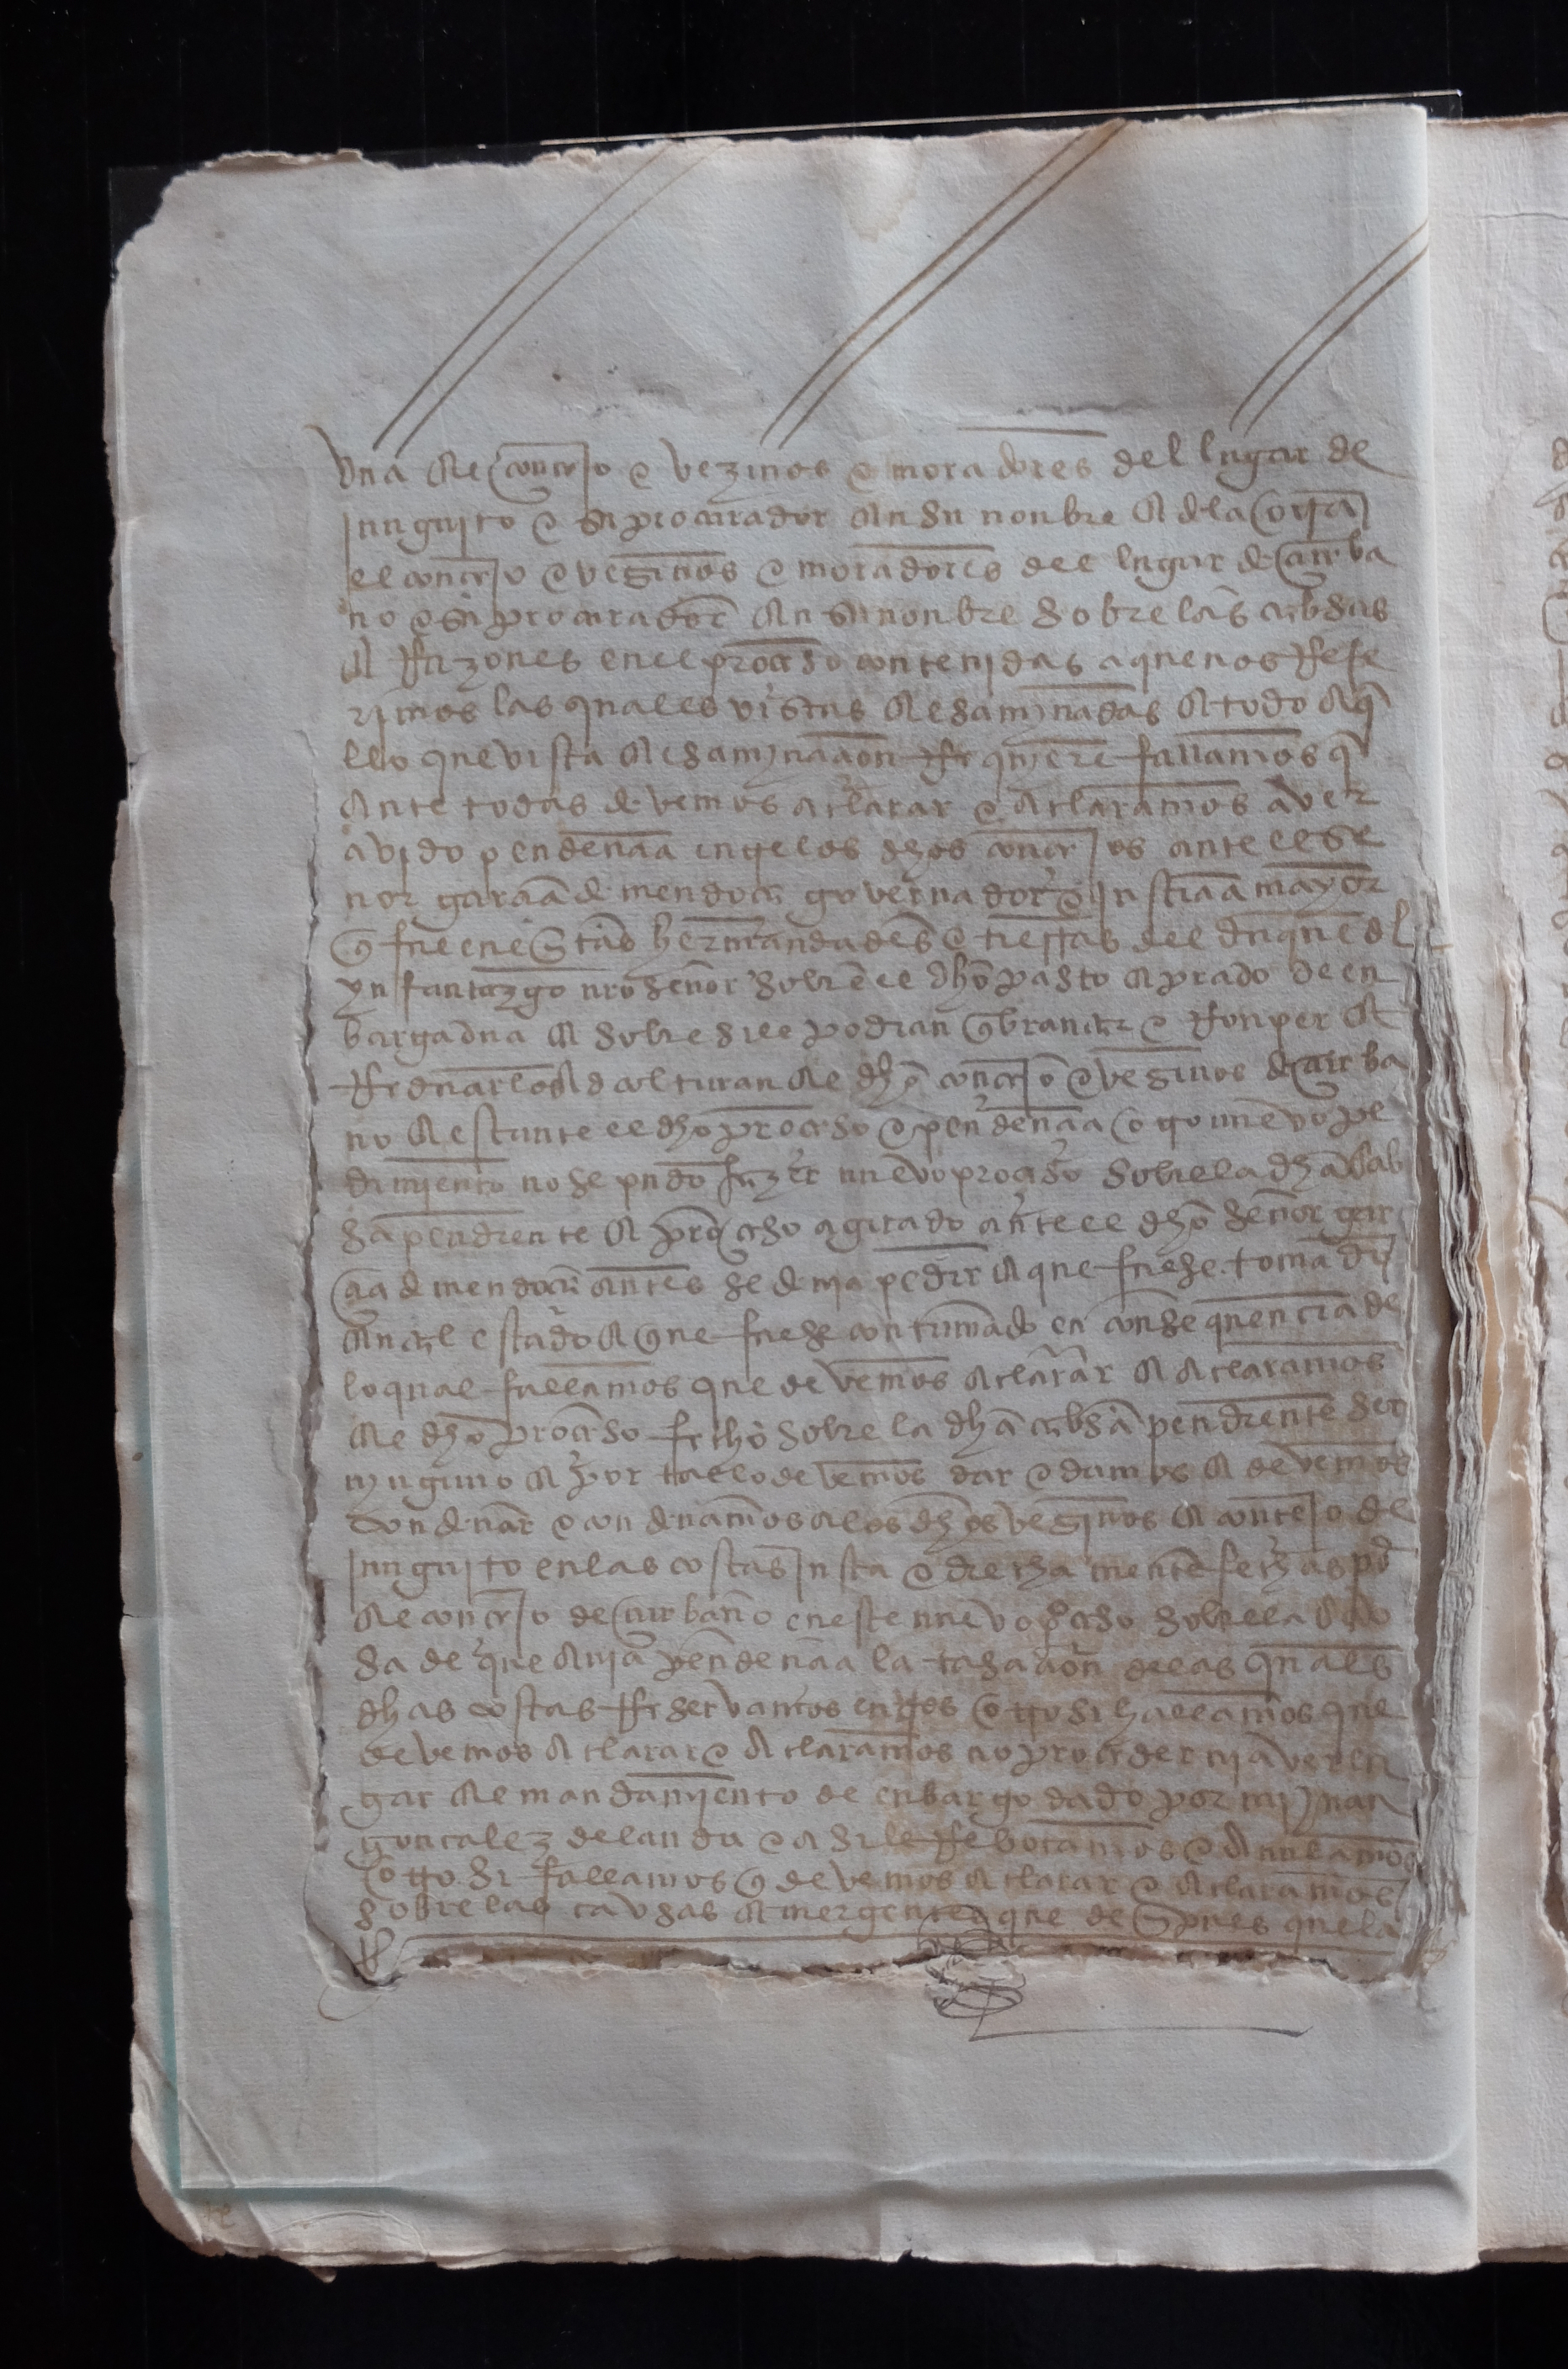 una el concejo e vezinos e moradores del lugar de
junguito e su procurador en su nonbre e de la otra
el concejo e vesinos e moradores del lugar de Çurba
no e su procurador en su nonbre sobre las cabsas
e rrazones en el proceso contenidas a que nos rrefe
rimos las quales vistas e esaminadas e todo aq̃
llo que vista e esaminaçion rrequiere fallamos q̃
ante todas devemos aclarar e aclaramos aver
avido pendençia entre los dhos concejos ante el se
nor garçia de mendoça governador e justiçia mayor
q̃ fue en estas hermandades e tierras del duque del
ynfantazgo nro señor sobre el dho pasto e prado de en
bargadna e sobre si le podian quebrantar e rronper e
rreduzirlo a coltura el dhõ concejo e vesinos de Çurba
no e estante el dho proceso e pendençia e otro nuevo pe
dimiento no se pudo fazer nuevo proceso sobre la dhã cab
sa pendiente e proceso agitado ante el dhõ señor gar
çia de mendoça antes se devia pedir e que fuese tomado
en el estado e que fuese continuado en consequençia de
lo qual fallamos que devemos aclarar e aclaramos
el dhõ proceso fecho sobre la dhã cabsa pendiente ser
ninguno e por tal lo devemos dar e damos e devemos
condenar e condenamos a los dhos vesinos e concejo de
junguito en las costas justa e derechamente fechas por
el concejo de Çurbano en este nuevo proceso sobre la cab
sa de que avia pendençia la tasaçion de las quales
dhas costas rreservamos en nos e otrosi hallamos que
devemos aclarar e aclaramos no proceder ni aver lu
gar el mandamiento de enbargo dado por mi juan
gonçalez de landa e asi le rrebocamos e anulamos
e otrosi fallamos q̃ devemos aclarar e aclaramos
sobre las cavsas emergentes que despues que la